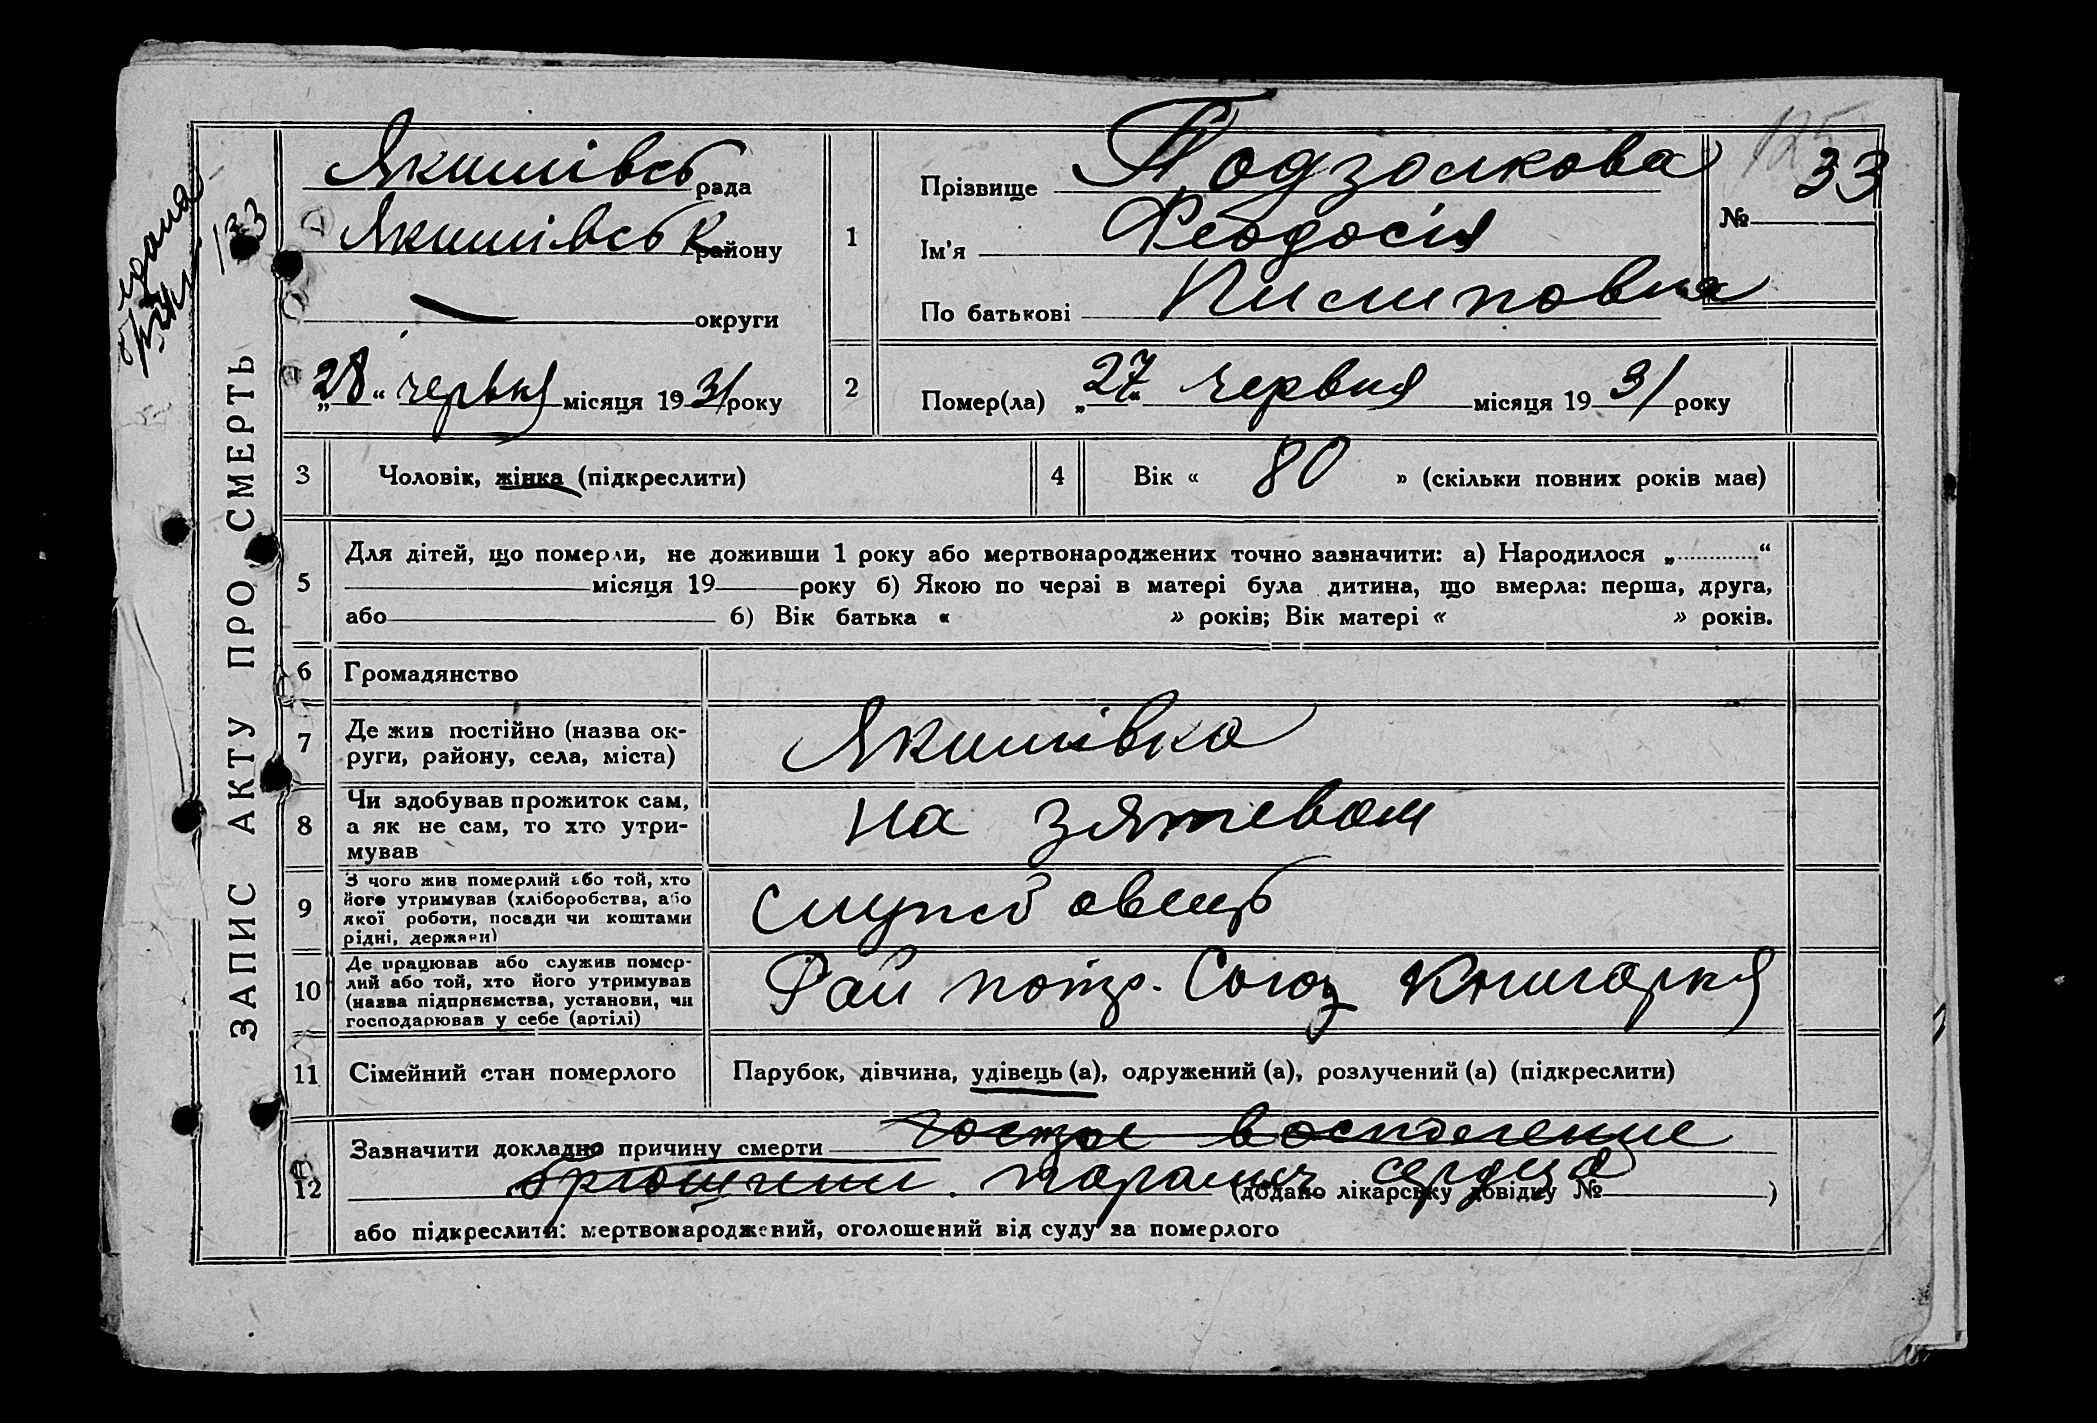 ЗАПИС АКТУ ПРО СМЕРТЬ
133
Якимівсь рада
Якимівськ району
округи
„28“ червня місяця 1931 року
1
Прізвище Подзолкова
Ім'я Феодосія
По батькові Пилиповна
125
№ 33
2
Помер(ла) „27“ червня місяця 1931 року
3 Чоловік, жінка (підкреслити)
4 Вік « 80 » (скільки повних років має)
5
Для дітей, що померли, не доживши 1 року або мертвонароджених точно зазначити: а) Народилося „ “
місяця 19 року б) Якою по черзі в матері була дитина, що вмерла: перша, друга,
або 6) Вік батька « » років; Вік матері « » років.
6 Громадянство
7
Де жив постійно (назва ок-
руги, району, села, міста)
Якимівка
8
Чи здобував прожиток сам,
а як не сам, то хто утри-
мував
на зятевом
9
З чого жив померлий або той, хто
його утримував (хліборобства, або
якої роботи, посади чи коштами
рідні, держави)
службовець
10
Де працював або служив помер-
лий або той, хто його утримував
(назва підприємства, установи, чи
господарював у себе (артілі)
Рай потр. Союз Книгарня
11 Сімейний стан померлого
Парубок, дівчина, удівець (а), одружений (а), розлучений (а) (підкреслити)
12
Зазначити докладно причину смерти воспаление
брюшини. паралич сердца (додано лікарську довідку № )
або підкреслити: мертвонароджений, оголошений від суду за померлого